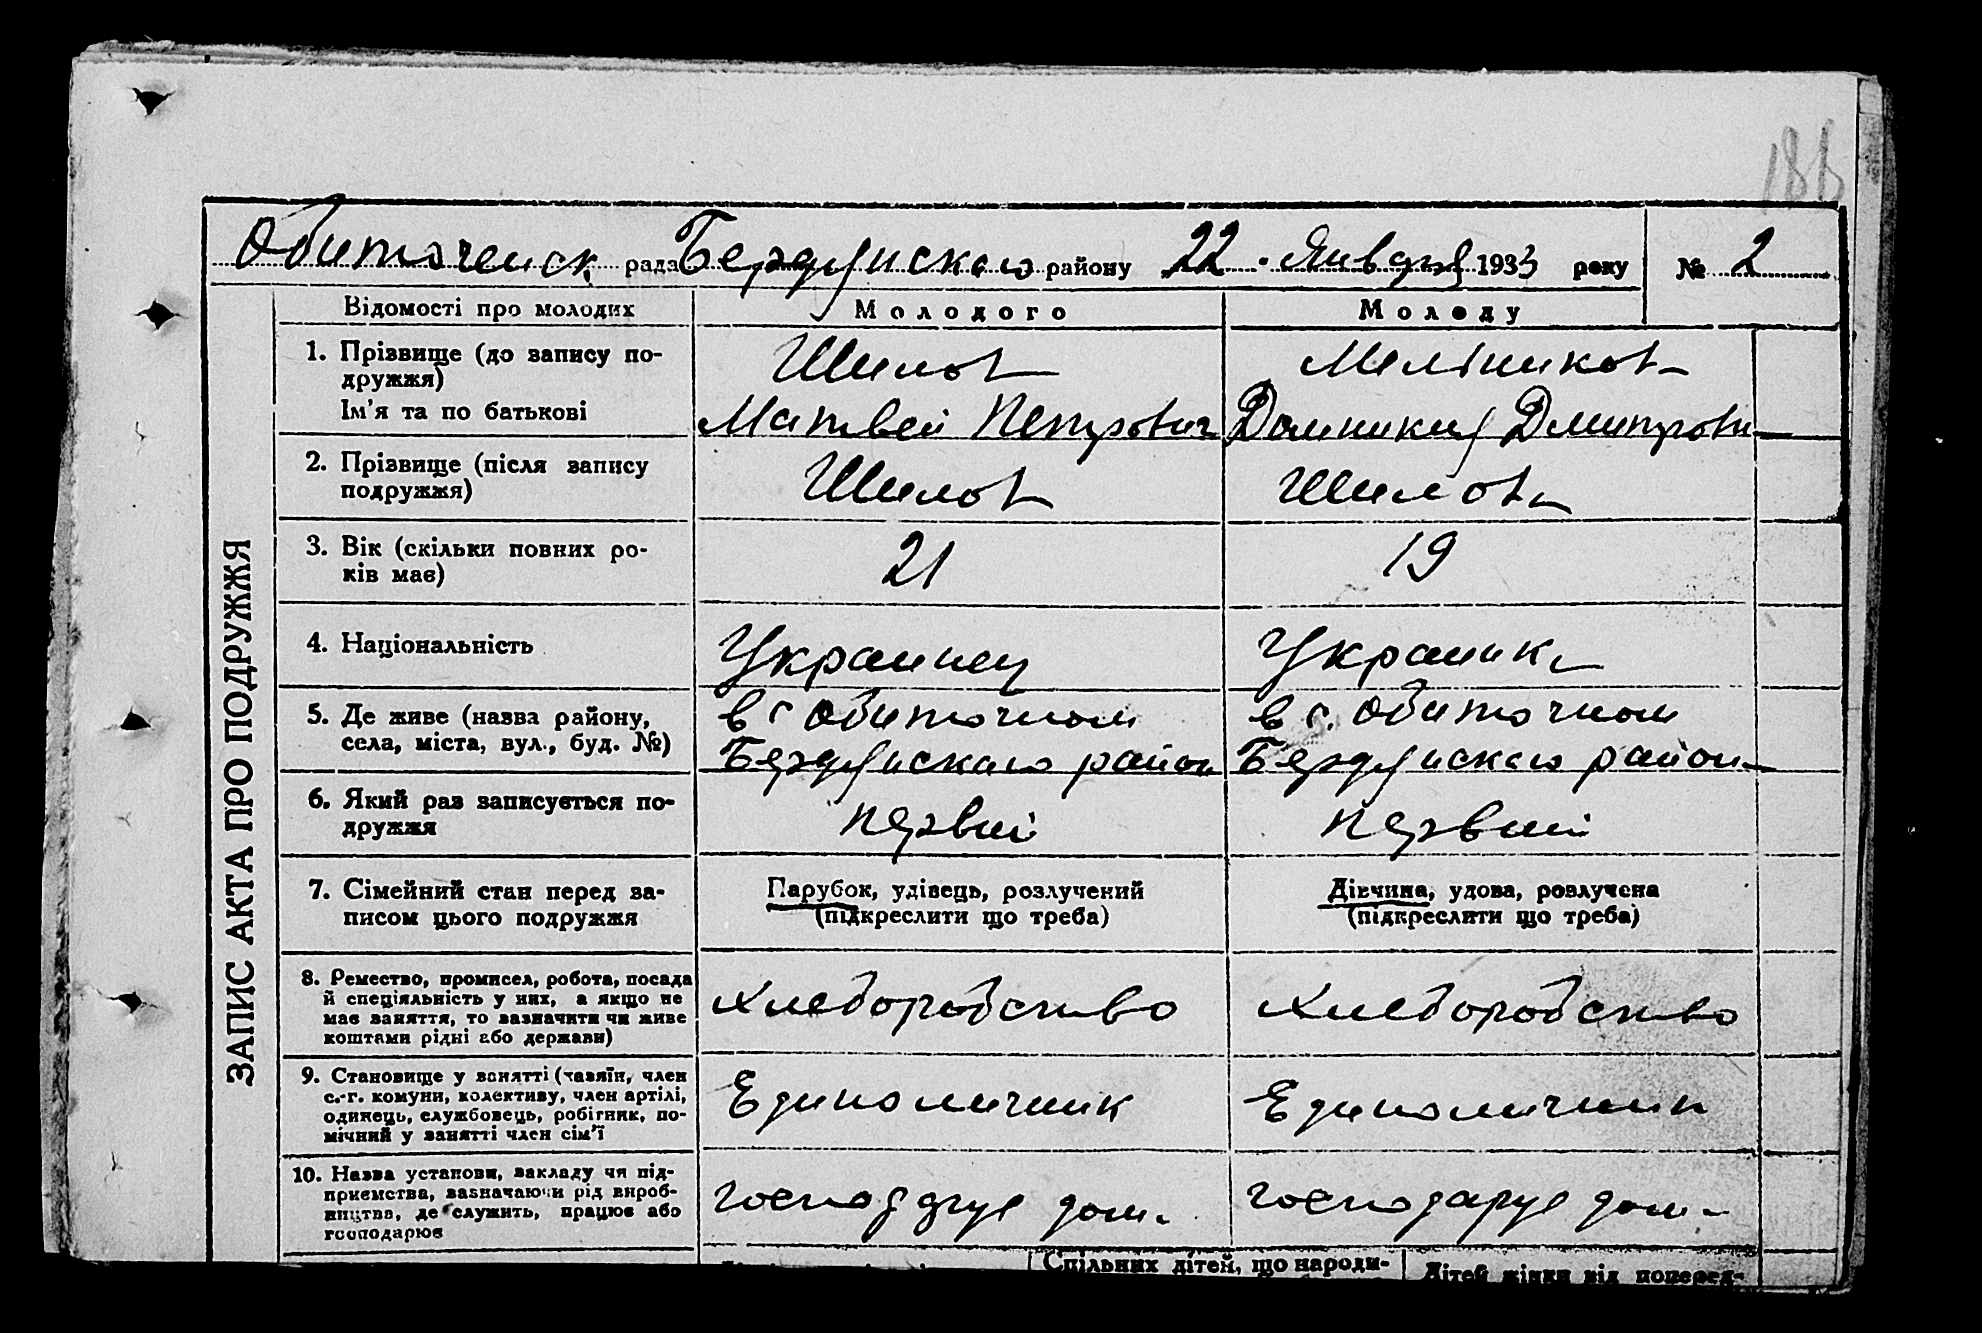 186
Обиточенск рада Бердянского району 22 Января 1933 року № 2
ЗАПИС АКТА ПРО ПОДРУЖЖЯ
Відомості про молодих Молодого Молоду
1. Прізвище (до запису по- Шилов Мельникова
дружжя)
Ім'я та по батькові Матвей Петрович Домникия Дмитровн
2. Прізвище (після запису Шилов Шилова
подружжя)
3. Вік (скільки повних ро- 21 19
ків має)
4. Національність Украинец Украинка
5. Де живе (назва району, в с Обиточном в с. Обиточном
села, міста, вул., буд. №) Бердянского район Бердянского район
6. Який раз записується по- первий первий
дружжя
7. Сімейний стан перед за- Парубок, удівець, розлучений Дівчина, удова, розлучена
писом цього подружжя (підкреслити що треба) (підкреслити що треба)
8. Ремество, промисел, робота, посада
й спеціяльність у них, а якщо не Хлеборобство Хлеборобство
має заняття, то зазначити чи живе
коштами рідні або держави)
9. Становище у занятті (хазяїн, член
с.-г. комуни, колективу, член артілі, Единоличник Единоличник
одинець, службовець, робітник, по-
мічний у занятті член сім'ї
10. Назва установи, закладу чи під-
приємства, зазначаючи рід вироб- господарує дом. господарує дом.
ництва, де служить, працює або
господарює
Спільних дітей, що народи- Дітей жінки від поперед-